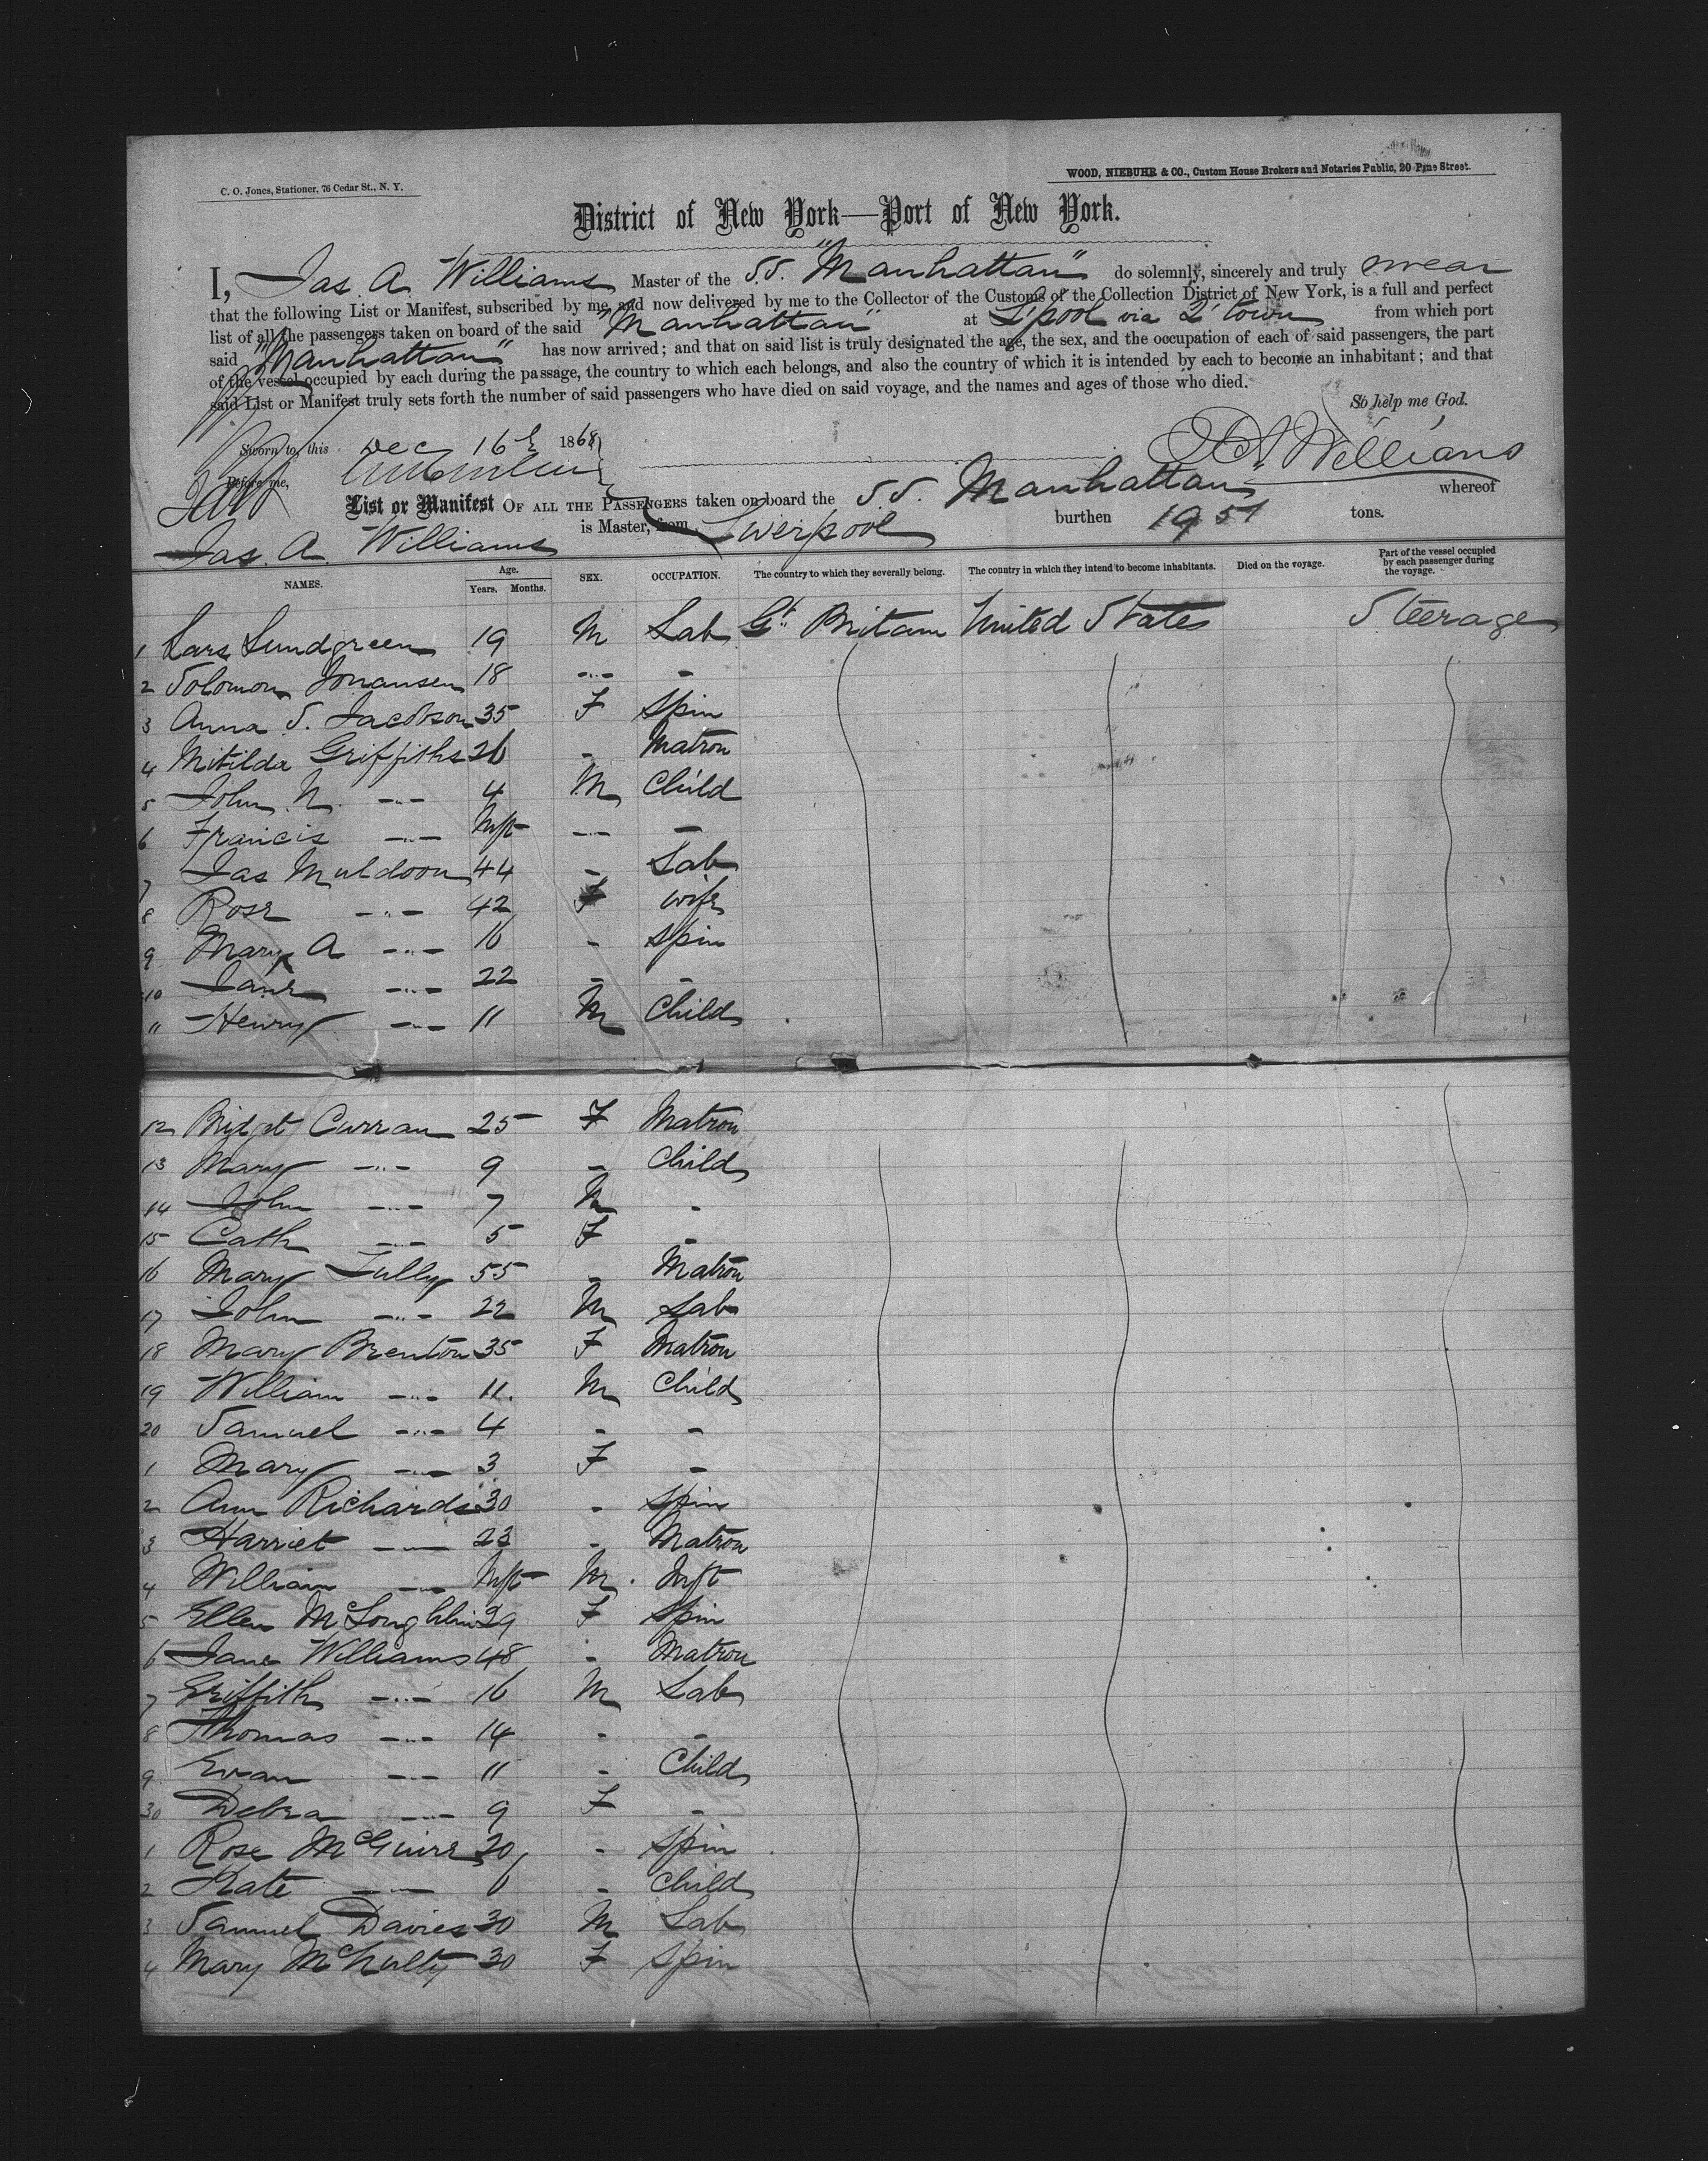 C. O. Jones, Stationer, 76 Cedar St., N. Y.
WOOD, NIEBUHR & CO., Custom House Brokers and Notaries Public, 20 Pine Street.
District of New York—Port of New York.
I, Jas. A Williams Master of the S.S. "Manhattan" do solemnly, sincerely and truly swear
that the following List or Manifest, subscribed by me, and now delivered by me to the Collector of the Customs of the Collection District of New York, is a full and perfect
list of all the passengers taken on board of the said "Manhattan" at L'pool via Q'town from which port
said "Manhattan" has now arrived; and that on said list is truly designated the age, the sex, and the occupation of each of said passengers, the part
of the vessel occupied by each during the passage, the country to which each belongs, and also the country of which it is intended by each to become an inhabitant; and that
said List or Manifest truly sets forth the number of said passengers who have died on said voyage, and the names and ages of those who died.
So help me God.
Sworn to this Dec 16th 1868
J A Williams
Before me,
List or Manifest OF ALL THE PASSENGERS taken on board the S.S. Manhattan whereof
Jas. A. Williams is Master, from Liverpool burthen 1951 tons.
NAMES. Age. Years. Months. SEX. OCCUPATION. The country to which they severally belong. The country in which they intend to become inhabitants. Died on the voyage. Part of the vessel occupied by each passenger during the voyage.
1 Lars Lundgreen 19 M Lab Gt. Britain United States Steerage
2 Solomon Jonansen 18 -"- -
3 Anna S. Jacobson 35 F Spin
4 Mitilda Griffiths 26 - Matron
5 John N. -"- 4 M Child
6 Francis -"- Inft -"- -
7 Jas Muldoon 44 - Lab
8 Rose -"- 42 F wife
9 Mary A -"- 16 - Spin
10 Jane -"- 22 - -
11 Henry -"- 11 M Child
12 Bridget Curran 25 F Matron
13 Mary -"- 9 - Child
14 John -"- 7 M -
15 Cath -"- 5 F -
16 Mary Tully 55 - Matron
17 John -"- 22 M Lab
18 Mary Brenton 35 F Matron
19 William -"- 11. M Child
20 Samuel -"- 4 - -
1 Mary -"- 3 F -
2 Ann Richards 30 - Spin
3 Harriet -"- 23 - Matron
4 William -"- Inft M. Inft
5 Ellen McLoughlin 29 F Spin
6 Jane Williams 48 - Matron
7 Griffith -"- 16 M Lab
8 Thomas -"- 14 - -
9 Evan -"- 11 - Child
30 Debra -"- 9 F -
1 Rose McGuire 20 - Spin
2 Kate -"- 6 - Child
3 Samuel Davies 30 M Lab
4 Mary McNulty 30 F Spin